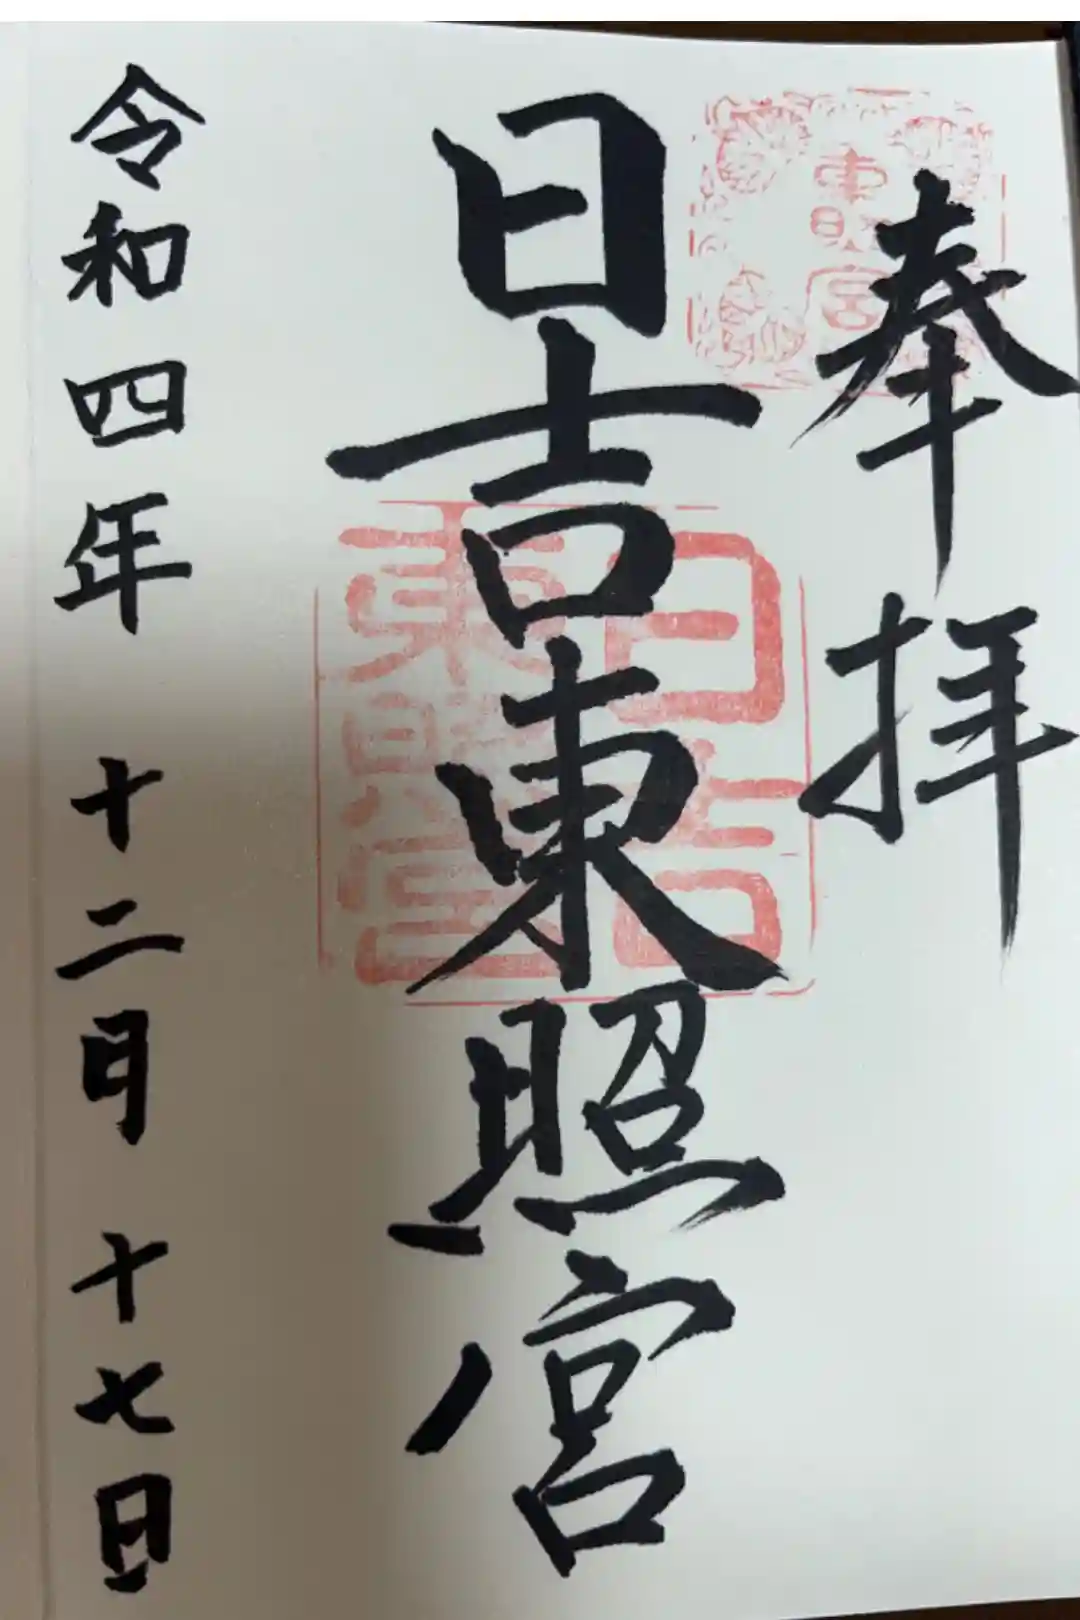 奉拝
東照宮
日吉東照宮
日吉
東照宮
令和四年 十二月 十七日